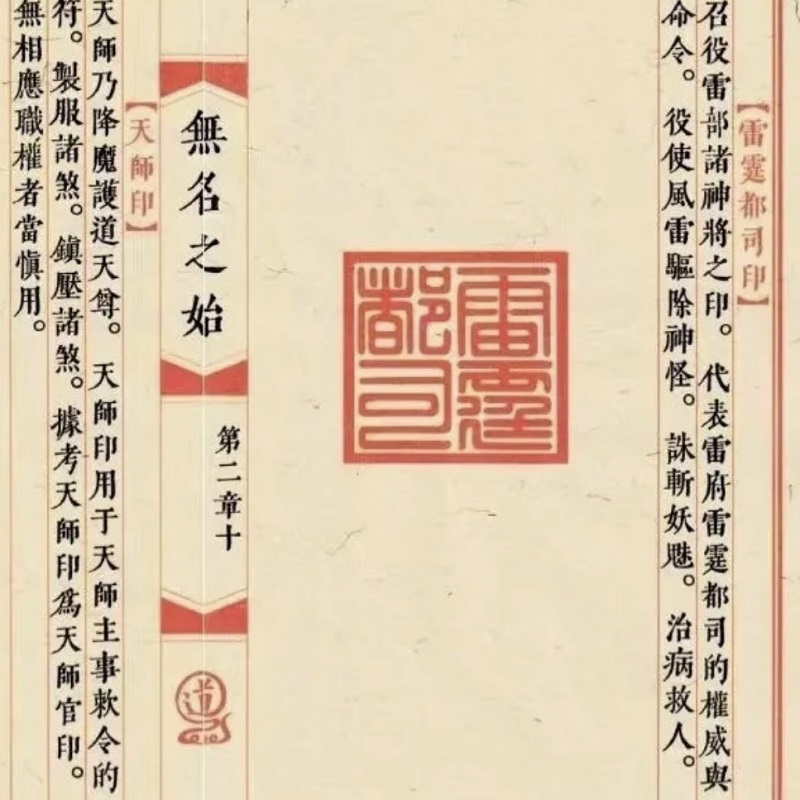 【雷霆都司印】
召役雷部諸神將之印。代表雷府雷霆都司的權威與
命令。役使風雷驅除神怪。誅斬妖魅。治病救人。
雷霆
都司
無名之始
第二章十
道
【天師印】
天師乃降魔護道天尊。天師印用于天師主事敕令的
符。製服諸煞。鎮壓諸煞。據考天師印爲天師官印。
無相應職權者當慎用。